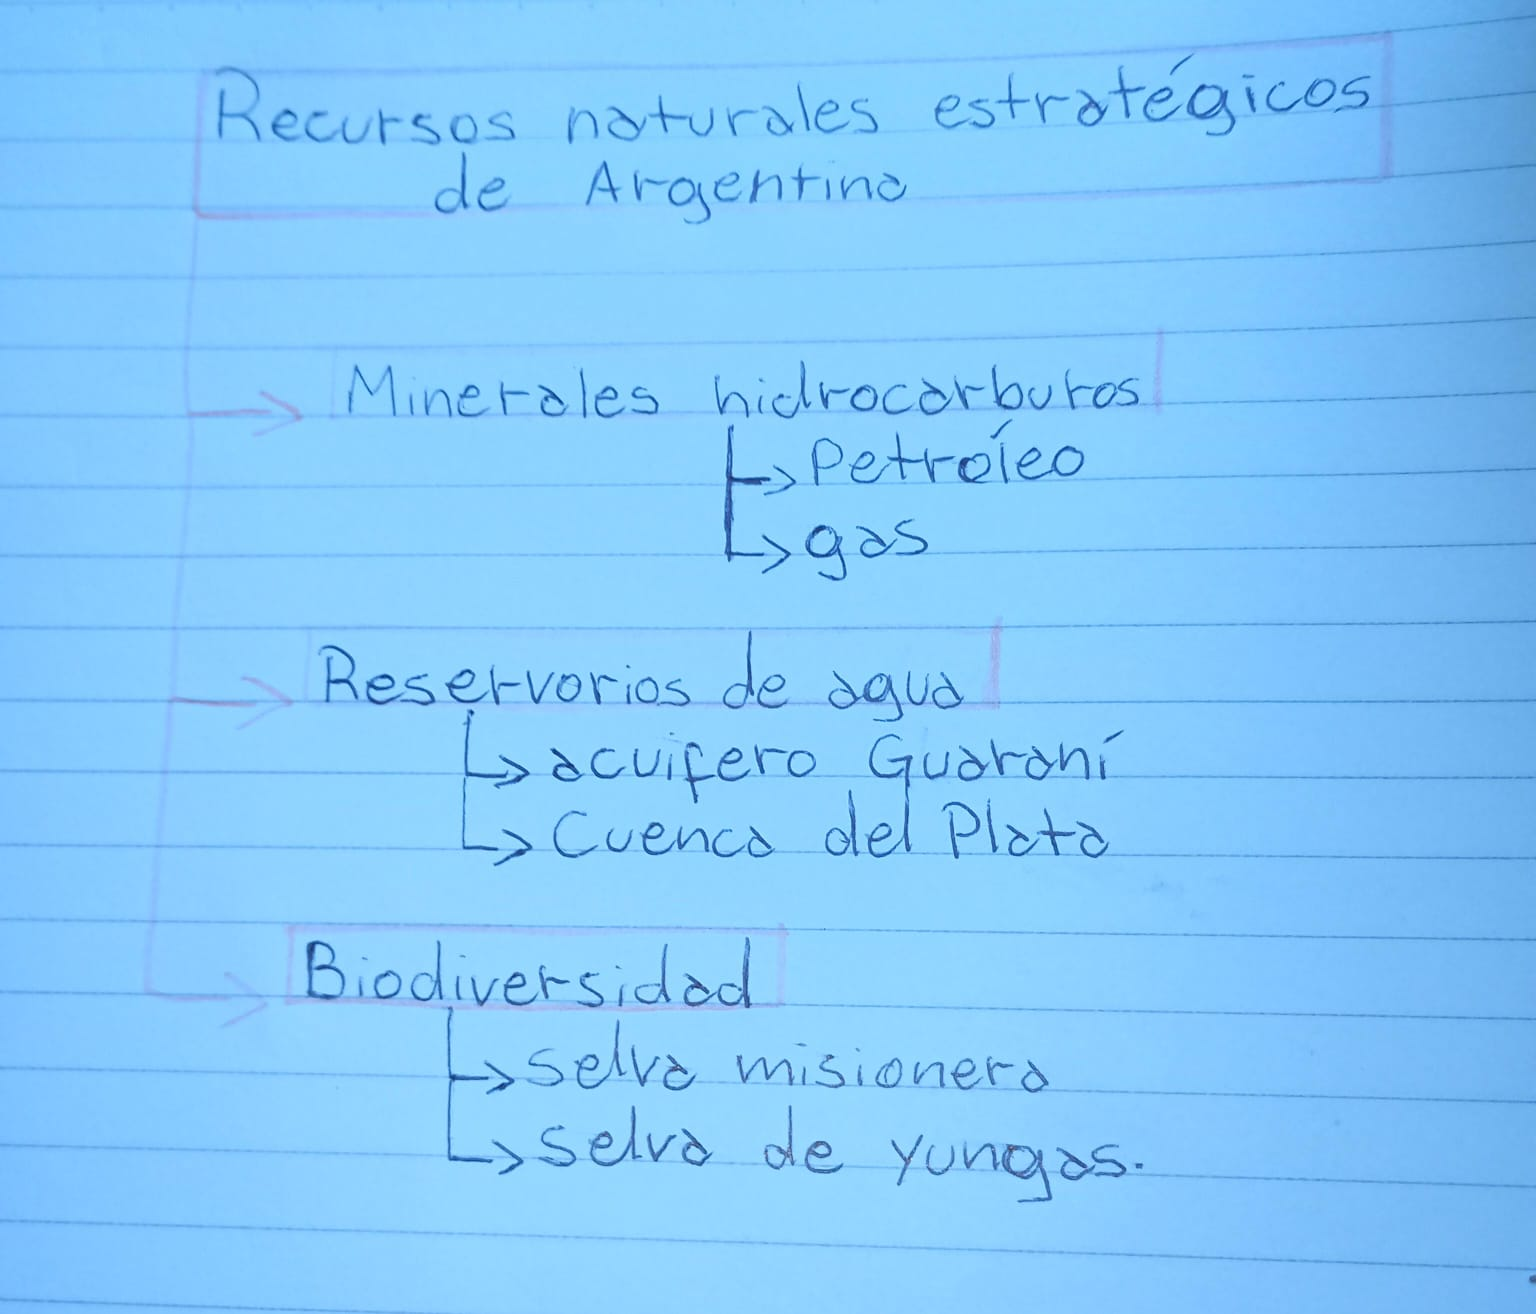 Recursos naturales estratégicos
de Argentina
Minerales hidrocarburos
Petróleo
gas
Reservorios de agua
acuifero Guaraní
Cuenca del Plata
Biodiversidad
selva misionera
selva de yungas.